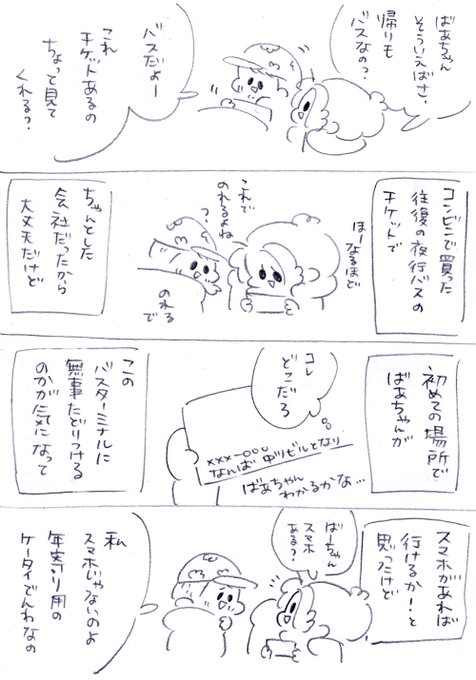 ばあちゃん
そういえばさ、
帰りも
バスなの?
バスだよー
これ
チケットあるの
ちょって見て
くれる?
コンビニで買った
往復の夜行バスの
チケットで
ほー
なるほど
これで
のれるよね
?
のれる
で
ちゃんとした
会社だったから
大丈夫だけど
初めての場所で
ばあちゃんが
コレ
どこだろ
xxx-000
なんば 中ツビルとなり
ばあちゃん
わかるかな…
この
バスターミナルに
無事たどりつける
のかが気になって
スマホがあれば
行けるか!と
思ったけど
ばーちゃん
スマホ
ある?
私
スマホじゃないのよ
年寄り用の
ケータイでんわなの